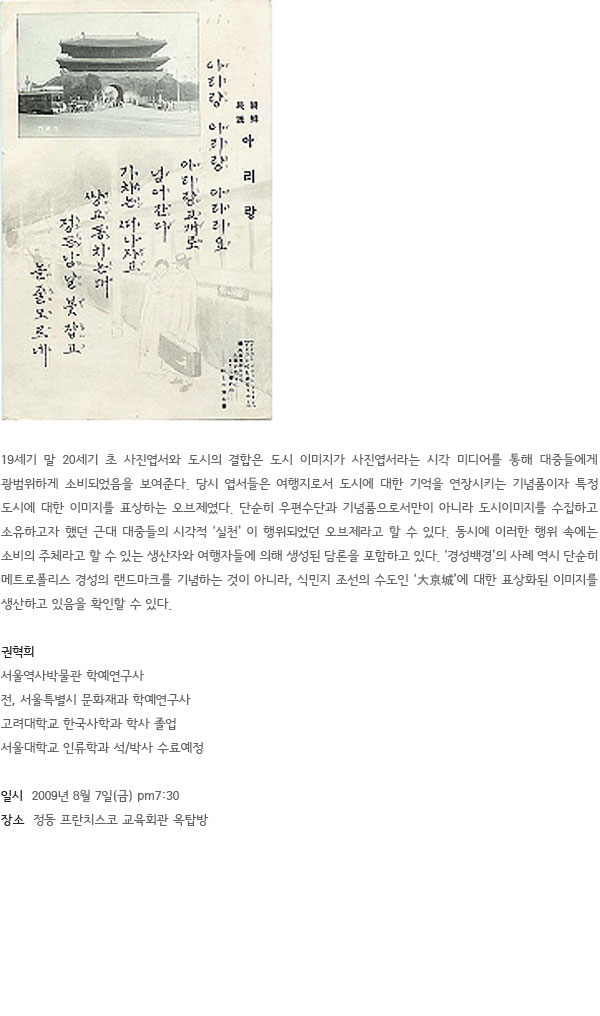 朝鮮
民謠
아리랑
아리랑 아리랑 아라리요
아리랑고개로
넘어간다
기차는 떠나자고
쌍고동치는데
정든님 날 붓잡고
돌줄모르네
19세기 말 20세기 초 사진엽서와 도시의 결합은 도시 이미지가 사진엽서라는 시각 미디어를 통해 대중들에게
광범위하게 소비되었음을 보여준다. 당시 엽서들은 여행지로서 도시에 대한 기억을 연장시키는 기념품이자 특정
도시에 대한 이미지를 표상하는 오브제였다. 단순히 우편수단과 기념품으로서만이 아니라 도시이미지를 수집하고
소유하고자 했던 근대 대중들의 시각적 ‘실천’ 이 행위되었던 오브제라고 할 수 있다. 동시에 이러한 행위 속에는
소비의 주체라고 할 수 있는 생산자와 여행자들에 의해 생성된 담론을 포함하고 있다. ‘경성백경’의 사례 역시 단순히
메트로폴리스 경성의 랜드마크를 기념하는 것이 아니라, 식민지 조선의 수도인 ‘大京城’에 대한 표상화된 이미지를
생산하고 있음을 확인할 수 있다.
권혁희
서울역사박물관 학예연구사
전, 서울특별시 문화재과 학예연구사
고려대학교 한국사학과 학사 졸업
서울대학교 인류학과 석/박사 수료예정
일시 2009년 8월 7일(금) pm7:30
장소 정동 프란치스코 교육회관 옥탑방